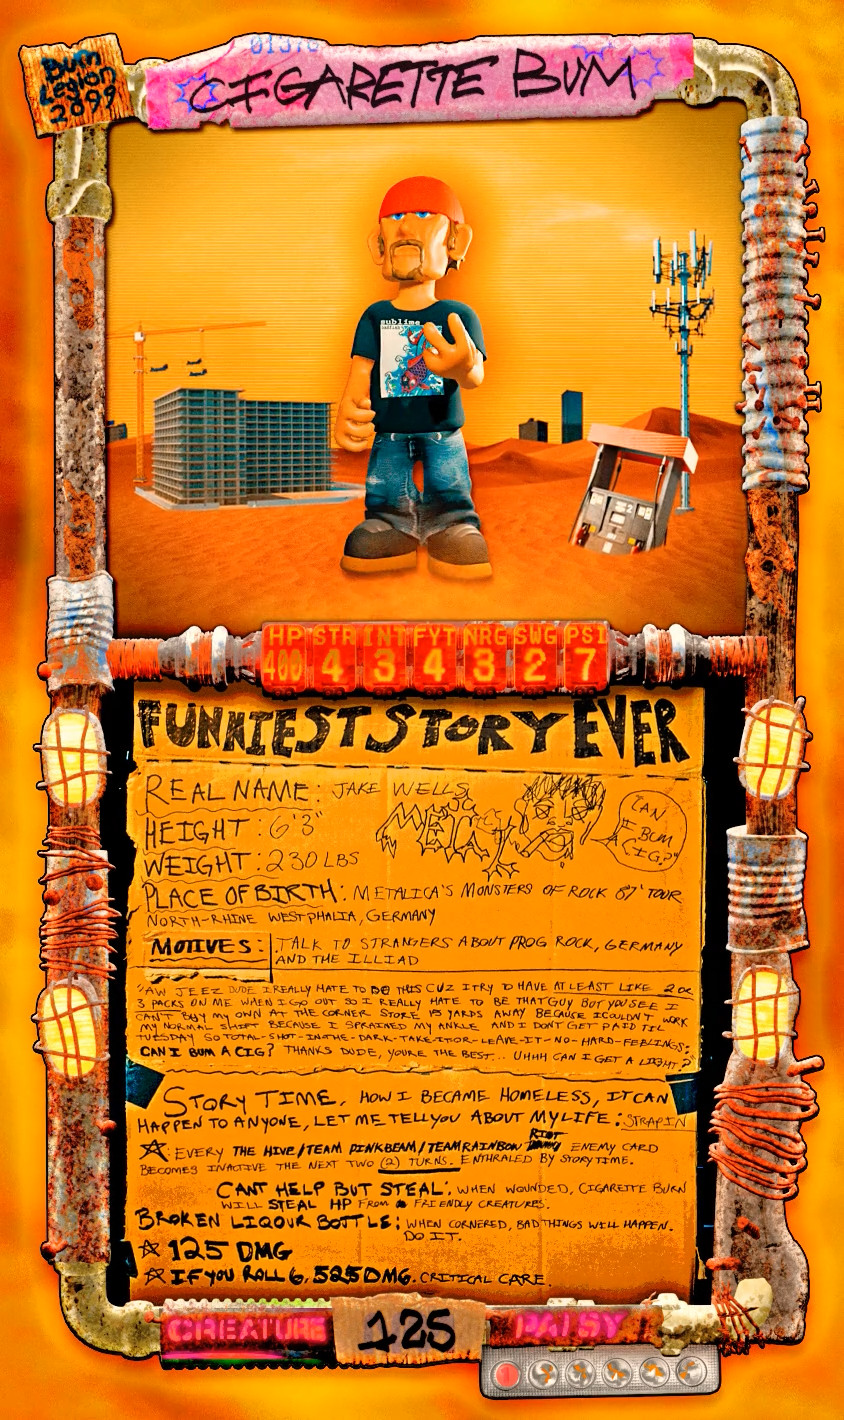 01376
Bum
Legion
2099
CIGARETTE BUM
sublime
HP STR INT FYT NRG SWG PSI
400 4 3 4 3 2 7
FUNNIEST STORY EVER
REAL NAME: JAKE WELLS
HEIGHT: 6'3"
WEIGHT: 230 LBS
"CAN
I BUM
A CIG?"
PLACE OF BIRTH: METALICA'S MONSTERS OF ROCK 87' TOUR
NORTH-RHINE WESTPHALIA, GERMANY
MOTIVES: TALK TO STRANGERS ABOUT PROG ROCK, GERMANY
AND THE ILLIAD
"AW JEEZ DUDE I REALLY HATE TO DO THIS CUZ I TRY TO HAVE AT LEAST LIKE 2 OR
3 PACKS ON ME WHEN I GO OUT SO I REALLY HATE TO BE THAT GUY BUT YOU SEE I
CAN'T BUY MY OWN AT THE CORNER STORE 15 YARDS AWAY BECAUSE I COULDN'T WORK
MY NORMAL SHIFT BECAUSE I SPRAINED MY ANKLE AND I DON'T GET PAID TIL
TUESDAY SO TOTAL-SHOT-IN-THE-DARK-TAKE-IT-OR-LEAVE-IT-NO-HARD-FEELINGS:
CAN I BUM A CIG? THANKS DUDE, YOURE THE BEST... UHHH CAN I GET A LIGHT?"
STORY TIME, HOW I BECAME HOMELESS, IT CAN
HAPPEN TO ANYONE, LET ME TELL YOU ABOUT MY LIFE: STRAP IN
EVERY THE HIVE/TEAM PINKBEAM/TEAM RAINBOW RIOT ENEMY CARD
BECOMES INACTIVE THE NEXT TWO (2) TURNS. ENTHRALED BY STORY TIME.
CANT HELP BUT STEAL: WHEN WOUNDED, CIGARETTE BUM
WILL STEAL HP FROM FRIENDLY CREATURES.
BROKEN LIQOUR BOTTLE: WHEN CORNERED, BAD THINGS WILL HAPPEN.
DO IT.
125 DMG
IF YOU ROLL 6, 525 DMG. CRITICAL CARE.
CREATURE 125 PALSY